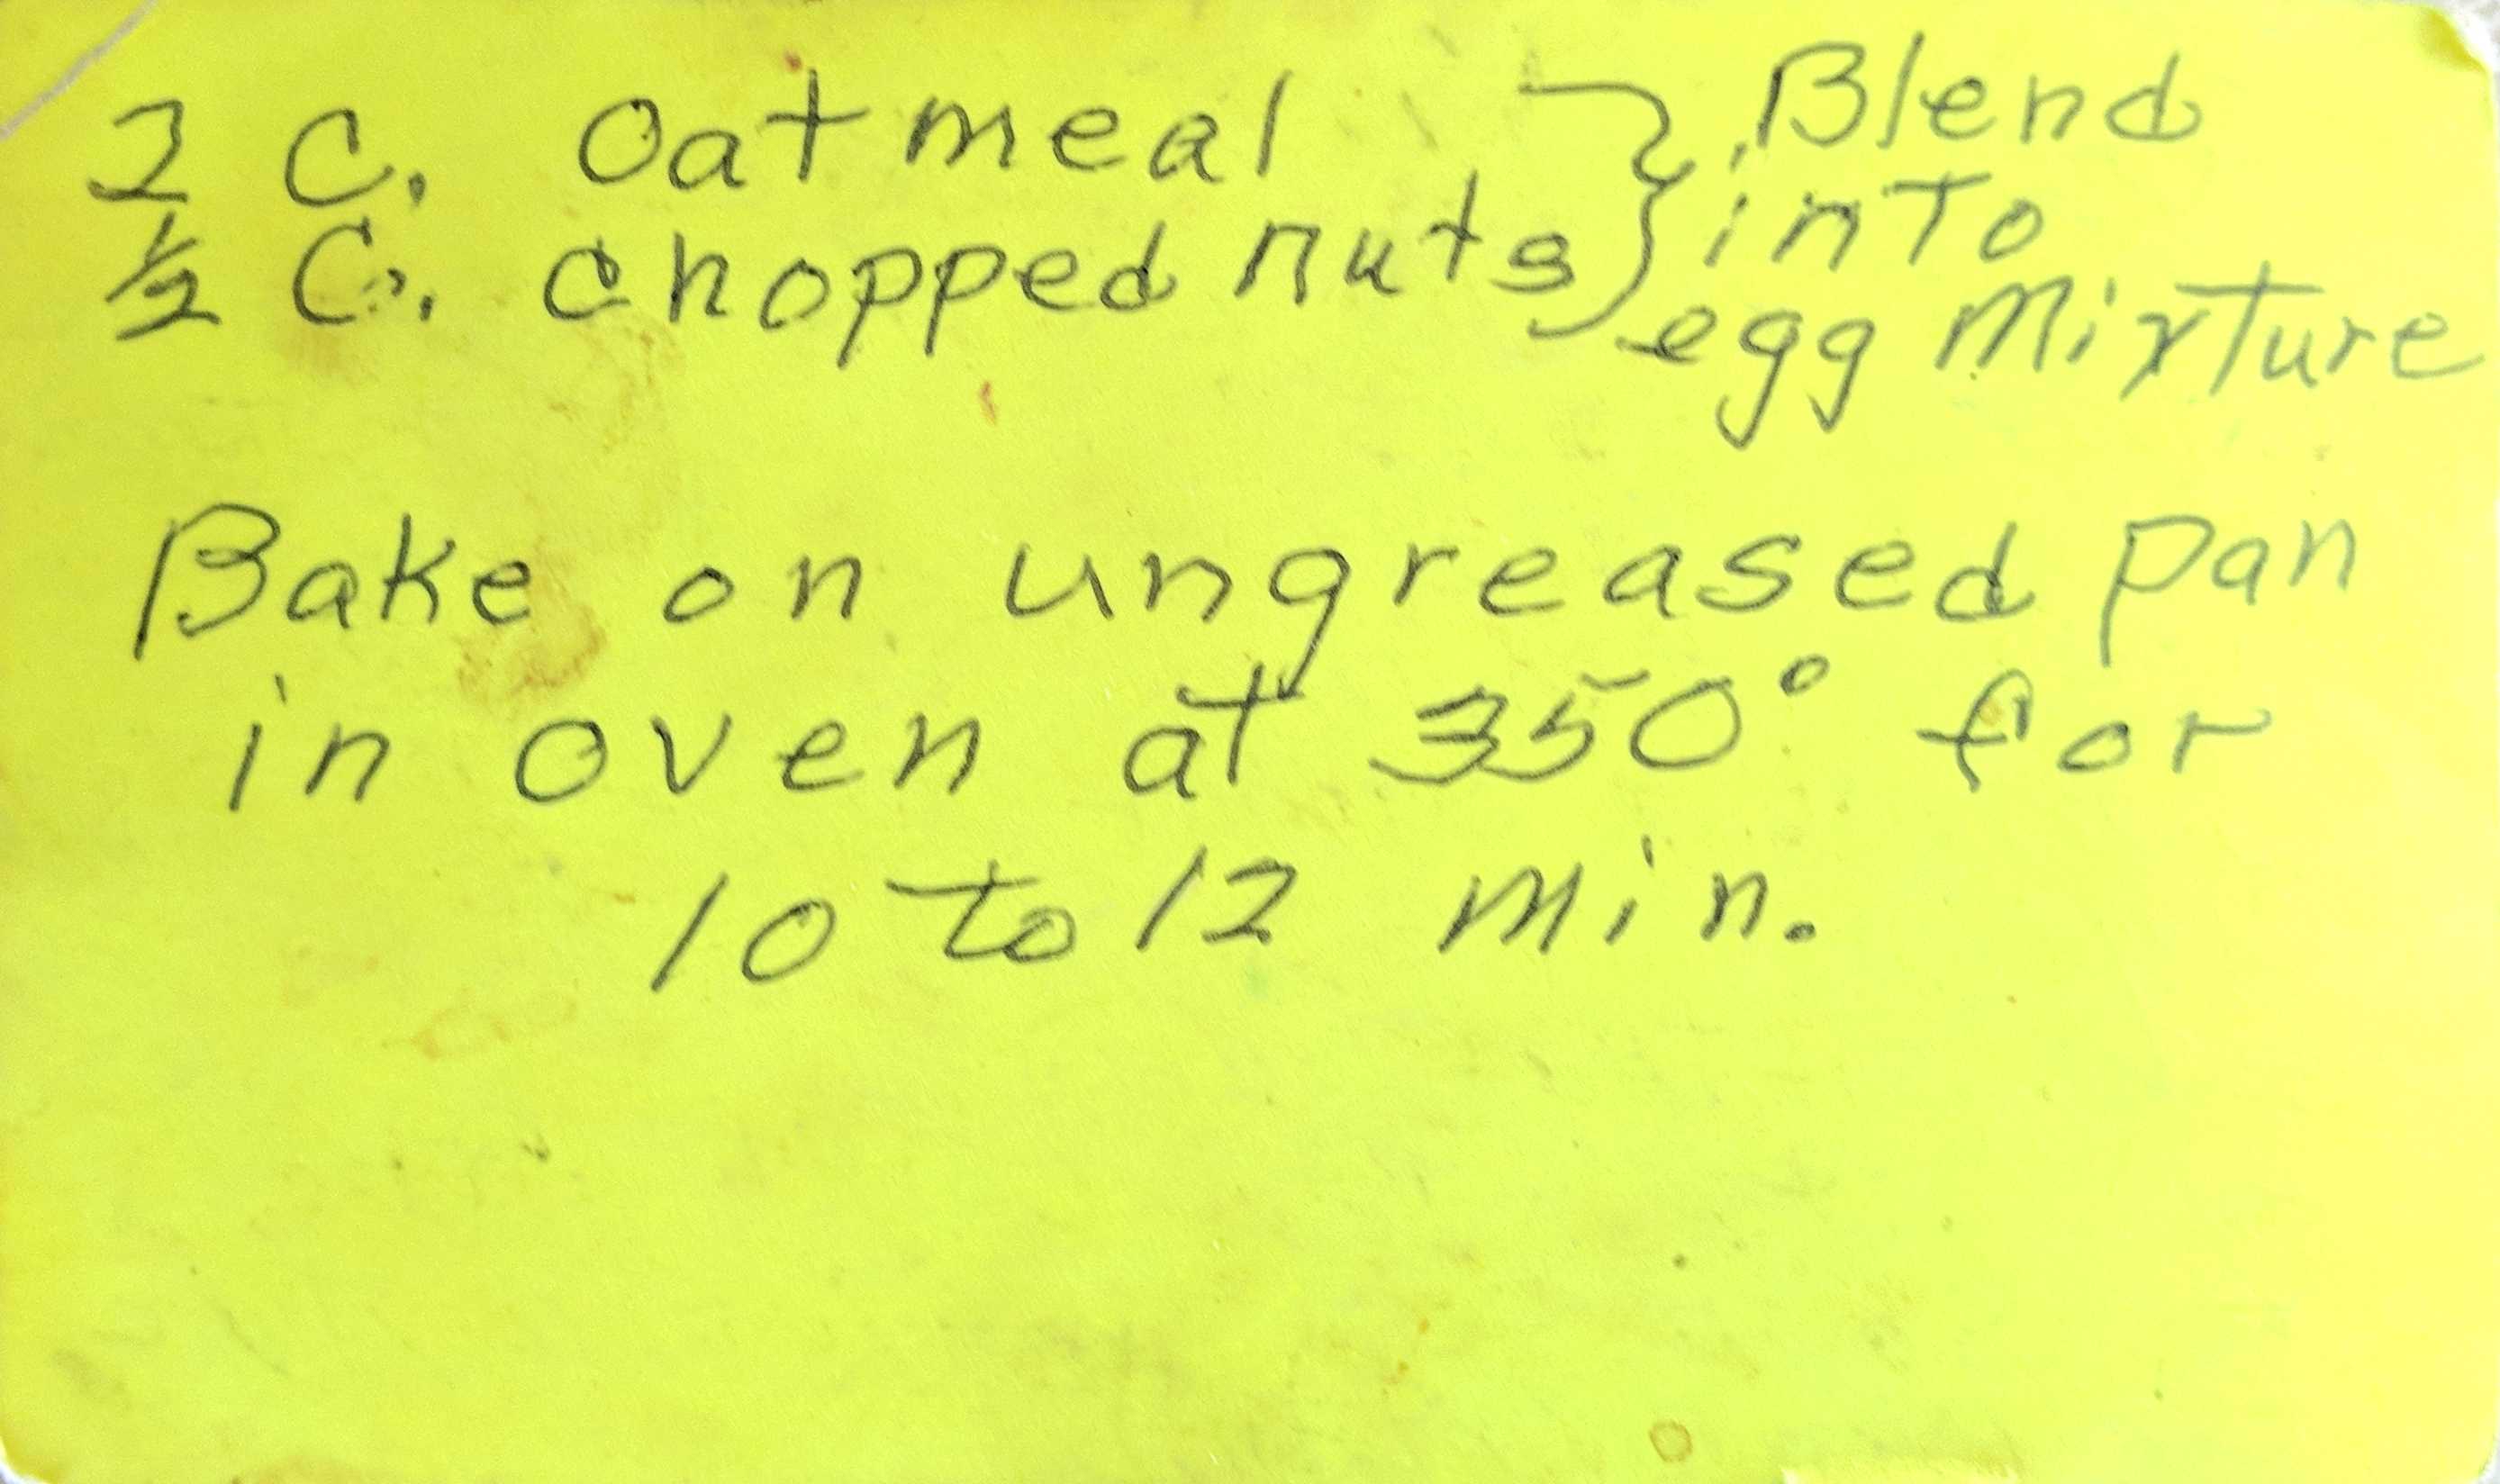 2 C. Oatmeal } Blend
½ C. chopped nuts } into
egg Mixture
Bake on ungreased pan
in oven at 350° for
10 to 12 min.